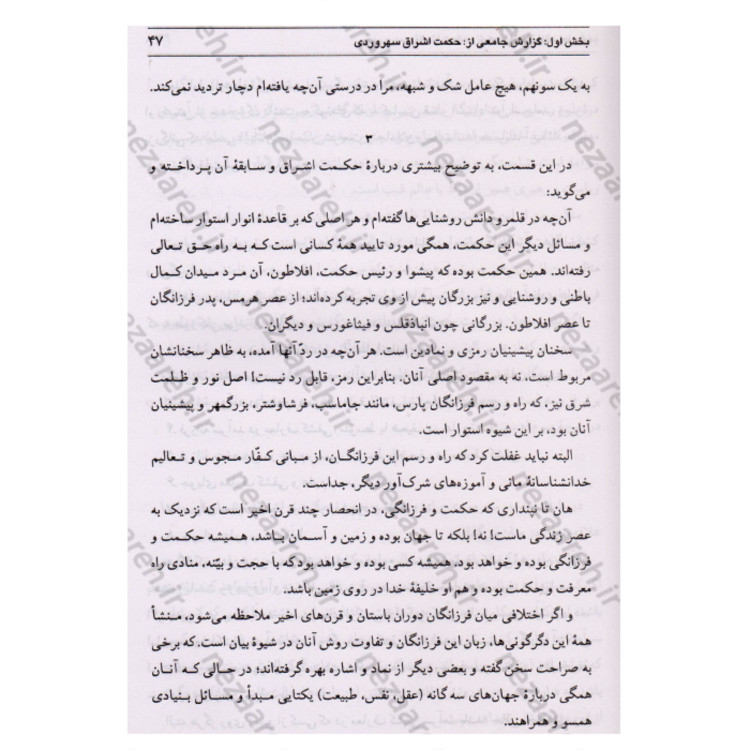 بخش اول: گزارش جامعی از: حکمت اشراق سهروردی ۴۷
به یک سو نهم، هیچ عامل شک و شبهه، مرا در درستی آن‌چه یافته‌ام دچار تردید نمی‌کند.
۳
در این قسمت، به توضیح بیشتری دربارهٔ حکمت اشراق و سابقهٔ آن پرداخته و
می‌گوید:
آن‌چه در قلمرو دانش روشنایی‌ها گفته‌ام و هر اصلی که بر قاعدهٔ انوار استوار ساخته‌ام
و مسائل دیگر این حکمت، همگی مورد تایید همهٔ کسانی است که به راه حق تعالی
رفته‌اند. همین حکمت بوده که پیشوا و رئیس حکمت، افلاطون، آن مرد میدان کمال
باطنی و روشنایی و نیز بزرگان پیش از وی تجربه کرده‌اند؛ از عصر هرمس، پدر فرزانگان
تا عصر افلاطون. بزرگانی چون انباذقلس و فیثاغورس و دیگران.
سخنان پیشینیان رمزی و نمادین است. هر آن‌چه در ردّ آنها آمده، به ظاهر سخنانشان
مربوط است، نه به مقصود اصلی آنان. بنابراین رمز، قابل رد نیست! اصل نور و ظلمت
شرق نیز، که راه و رسم فرزانگان پارس، مانند جاماسب، فرشاوشتر، بزرگمهر و پیشینیان
آنان بود، بر این شیوه استوار است.
البته نباید غفلت کرد که راه و رسم این فرزانگان، از مبانی کفّار مجوس و تعالیم
خدانشناسانهٔ مانی و آموزه‌های شرک‌آور دیگر، جداست.
هان تا نپنداری که حکمت و فرزانگی، در انحصار چند قرن اخیر است که نزدیک به
عصر زندگی ماست! نه! بلکه تا جهان بوده و زمین و آسمان باشد، همیشه حکمت و
فرزانگی بوده و خواهد بود. همیشه کسی بوده و خواهد بود که با حجت و بیّنه، منادی راه
معرفت و حکمت بوده و هم او خلیفهٔ خدا در روی زمین باشد.
و اگر اختلافی میان فرزانگان دوران باستان و قرن‌های اخیر ملاحظه می‌شود، منشأ
همهٔ این دگرگونی‌ها، زبان این فرزانگان و تفاوت روش آنان در شیوهٔ بیان است، که برخی
به صراحت سخن گفته و بعضی دیگر از نماد و اشاره بهره گرفته‌اند؛ در حالی که آنان
همگی دربارهٔ جهان‌های سه گانه (عقل، نفس، طبیعت) یکتایی مبدأ و مسائل بنیادی
همسو و همراهند.
nezaareh.ir